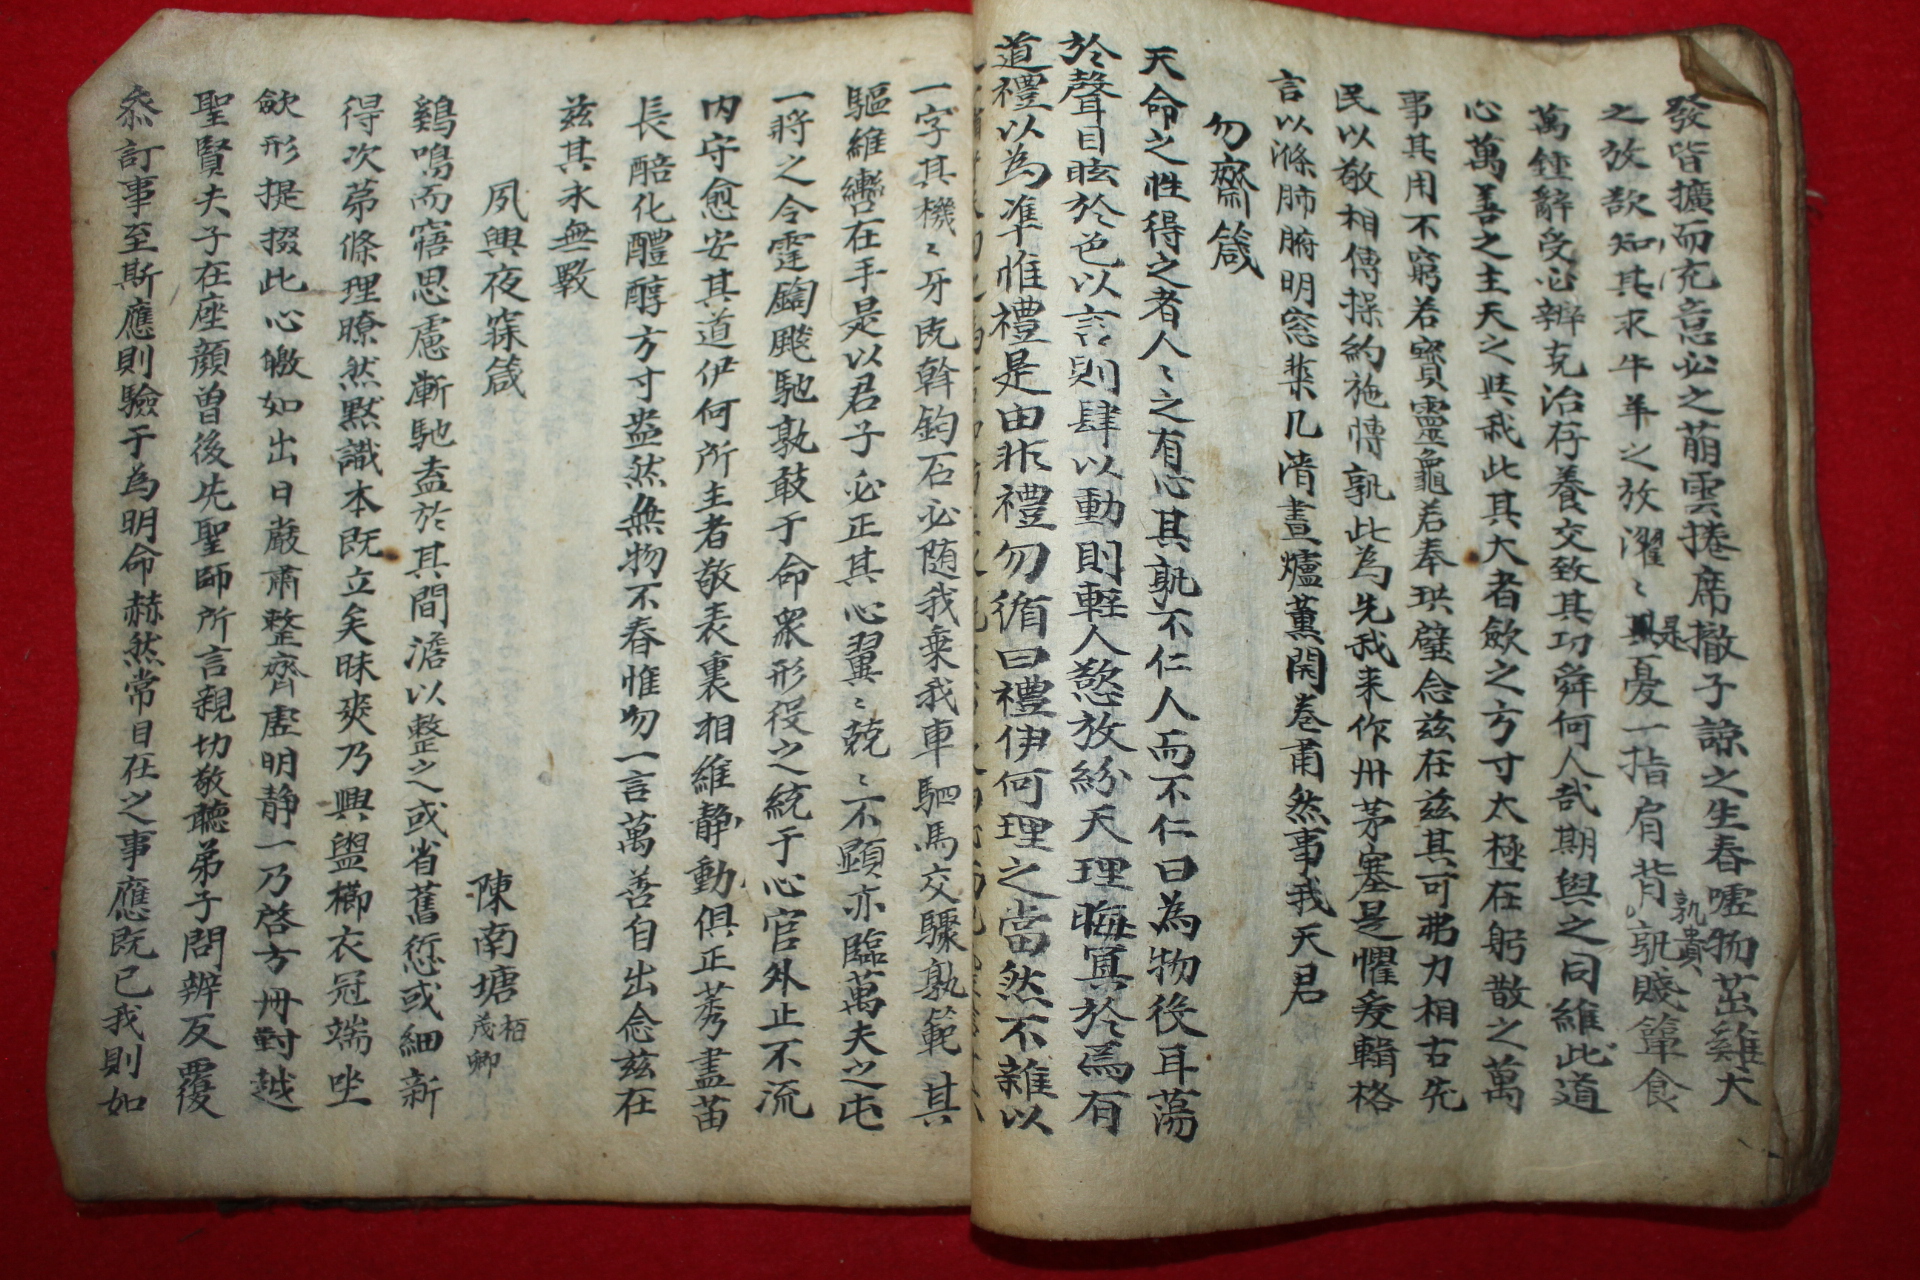 發皆擴而充意必之萠雲捲席撤子諒之生春噓物茁雞犬
之放欲知其求牛羊之放濯〻是憂一指肩背孰貴孰賤簞食
萬鍾辭受必辨克治存養交致其功舜何人哉期與之同維此道
心萬善之主天之與我此其大者斂之方寸太極在躬散之萬
事其用不窮若寶靈龜若奉珙璧念兹在兹其可弗力相古先
民以敬相傳操約施博孰此為先我来作州茅塞是懼爰輯格
言以滌肺腑明窓棐几清晝爐薰開巻肅然事我天君
勿齋箴
天命之性得之者人〻之有心其孰不仁人而不仁曰為物役耳蕩
於聲目眩於色以言則肆以動則輕人慾放紛天理晦冥於焉有
道禮以為準惟禮是由非禮勿循曰禮伊何理之當然不雜以
一字其機〻牙既斡鈞石必随我乗我車駟馬交驟孰範其
驅維轡在手是以君子必正其心翼〻兢〻不顯亦臨萬夫之屯
一將之令霆鍧飈馳孰敢于命衆形役之統于心官外止不流
内守愈安其道伊何所主者敬表裏相維静動俱正莠盡苗
長醅化醴醇方寸盎然無物不春惟勿一言萬善自出念兹在
兹其永無斁
夙興夜寐箴
陳南塘栢茂卿
鷄鳴而寤思慮漸馳盍於其間澹以整之或省舊愆或紬新
得次第條理瞭然黙識本既立矣昧爽乃興盥櫛衣冠端坐
斂形提掇此心皦如出日嚴肅整齊虛明静一乃啓方冊對越
聖賢夫子在座顔曽後先聖師所言親切敬聽弟子問辨反覆
叅訂事至斯應則驗于為明命赫然常目在之事應既已我則如